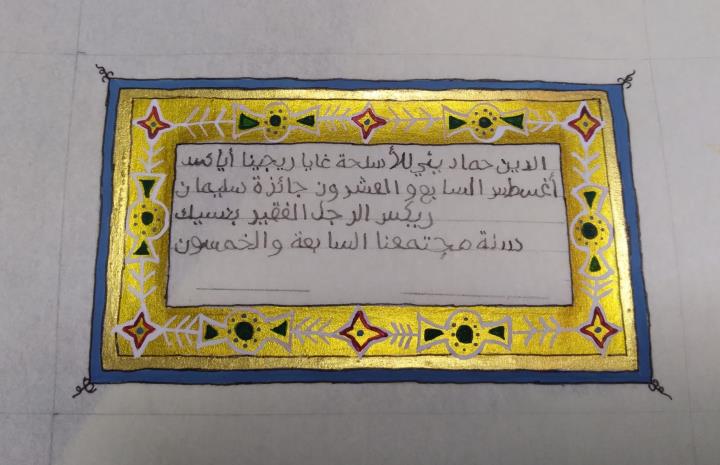 الدين حماد بني للأسلحة غايا ريجينا أياكس
أغسطس السابع و العشرون جائزة سليمان
ريكس الرجل الفقير بعسيك
سنة مجتمعنا السابعة والخمسون